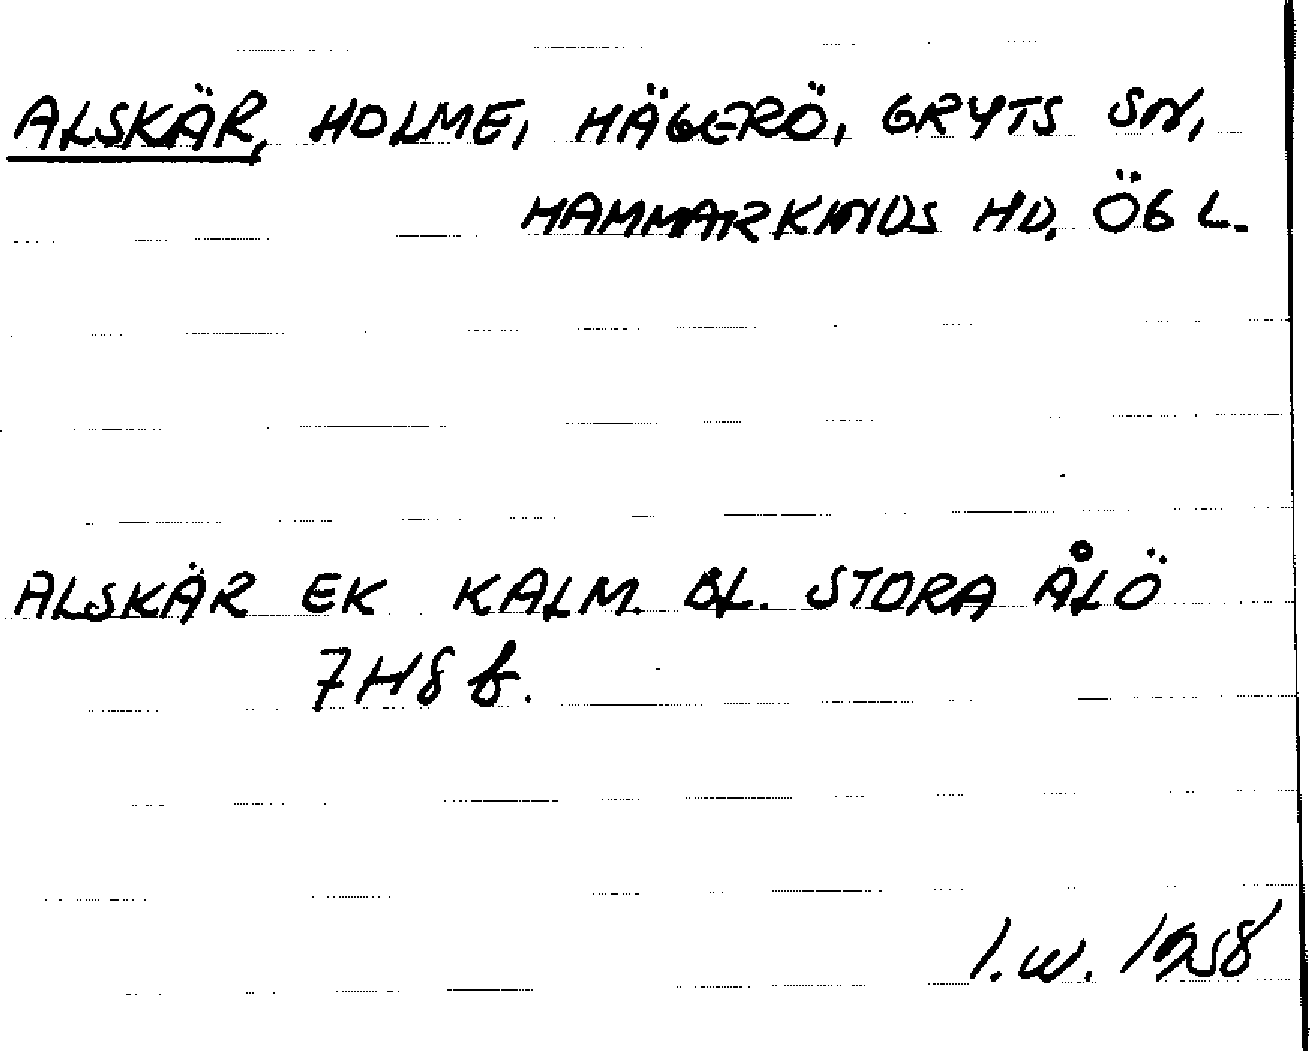 ALSKÄR, HOLME, HÄGERÖ, GRYTS SN,
HAMMARKINDS HD, ÖG L.
ALSKÄR EK KALM. BL. STORA ÅLÖ
7H8 b.
I.W. 1958